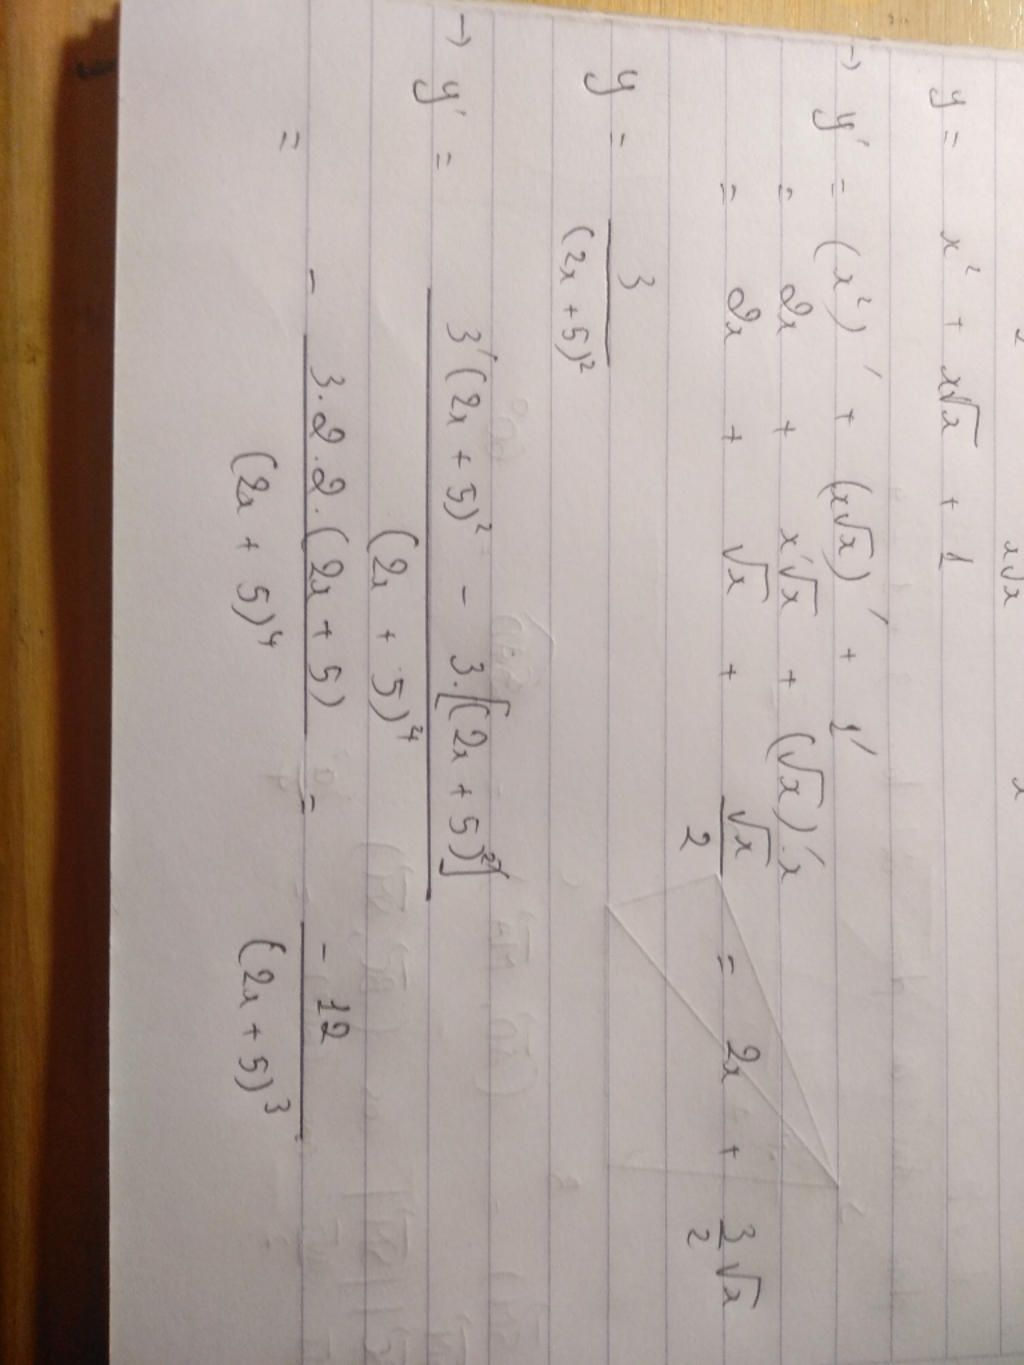 x√x
y = x² + x√x + 1
→ y' = (x²)' + (x√x)' + 1'
= 2x + x'√x + (√x)'.x
= 2x + √x + √x/2 = 2x + 3/2 √x
y = 3/(2x + 5)²
→ y' = 3'(2x + 5)² - 3.[(2x + 5)²]'
(2x + 5)²⁴
= - 3.2.2.(2x + 5)/(2x + 5)⁴ = -12/(2x + 5)³